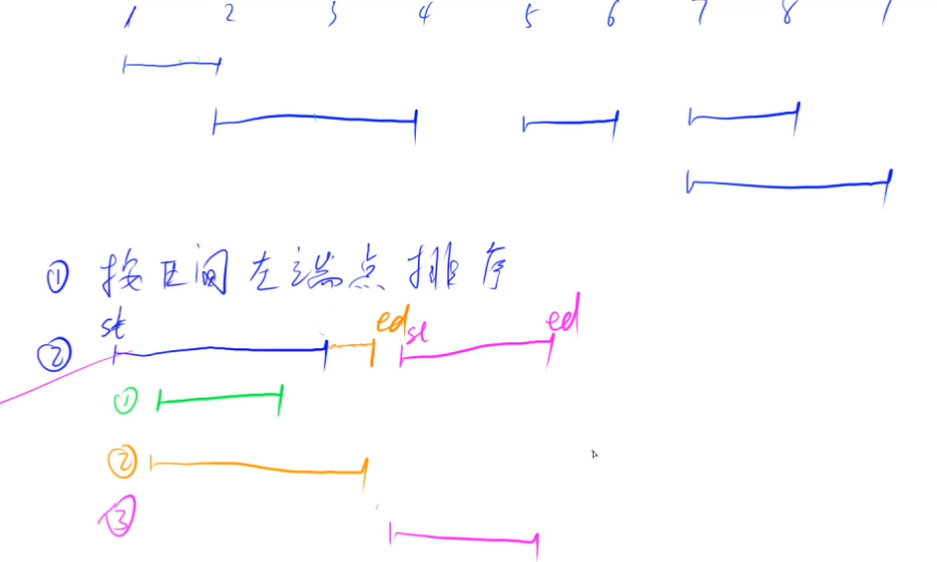 1 2 3 4 5 6 7 8
① 按区间左端点排序
st ed st ed
②
①
②
③